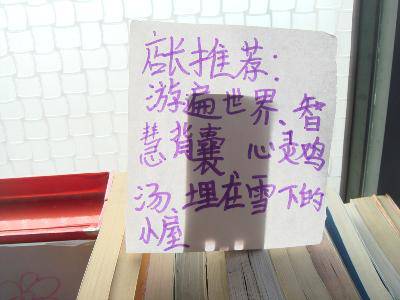 店长推荐:
游遍世界、智
慧背囊 心灵鸡
汤、埋在雪下的
小屋